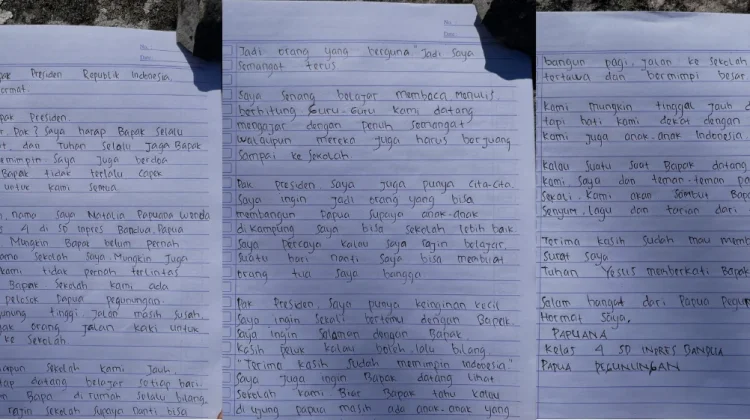 No.
Date
pak Presiden Republik Indonesia.
ormat.
pak Presiden.
r. Pak? Saya harap Bapak selalu
t, dan Tuhan Selalu Jaga Bapak
ermimpin. Saya juga berdoa
Bapak tidak terlalu capek
untuk kami semua.
, nama saya Natalia Papuana Wenda
s 4 di SD Inpres Bandua, Papua
Mungkin Bapak belum pernah
ama Sekolah saya. Mungkin Juga
kami tidak pernah terlintas
Bapak Sekolah kami ada
pelosok Papua pegunungan.
gunung tinggi. Jalan masih susah.
yak orang Jalan kaki untuk
ke Sekolah.
apun sekolah kami Jauh,
tap datang belajar setiap hari.
n Bapa di rumah selalu bilang.
rajin sekolah supaya nanti bisa
No.
Date
Jadi orang yang berguna" Jadi Saya
semangat terus
Saya Senang belajar membaca menulis.
berhitung Guru-Guru kami datang
mengajar dengan penuh semangat
walaupun mereka juga harus berjuang
Sampai ke sekolah
Pak presiden saya juga punya cita-cita.
Saya ingin Jadi orang yang bisa
membangun Papua supaya anak-anak
di kampung saya bisa sekolah lebih baik.
Saya percaya kalau saya rajin belajar.
suatu hari nanti saya bisa membuat
orang tua saya bangga.
Pak Presiden, saya punya keinginan kecil
Saya ingin sekali bertemu dengan Bapak.
Saya ingin Salaman dengan Bapak.
Kasih peluk kalau boleh. lalu bilang
"Terima kasih sudah memimpin Indonesia."
Saya Juga ingin Bapak datang lihat
Sekolah kami. Biar Bapak tahu kalau
di ujung papua masih ada anak-anak yang
bangun pagi, jalan ke sekolah
tertawa dan bermimpi besar
Kami mungkin tinggal jauh d
tapi hati kami dekat dengan
Kami juga anak-anak Indonesia
Kalau Suatu Saat Bapak datang
Kami, Saya dan teman-teman pa
Sekali. Kami akan Sambut Bapa
Senyum, lagu dan tarian dari
Terima kasih sudah mau memb
Surat saya
Tuhan Yesus memberkati Bapak
Salam hangat dari Papua Pegun
Hormat Saya,
PAPUANA
Kelas 4 SD INPRES BANDUA
PAPUA PEGUNUNGAN